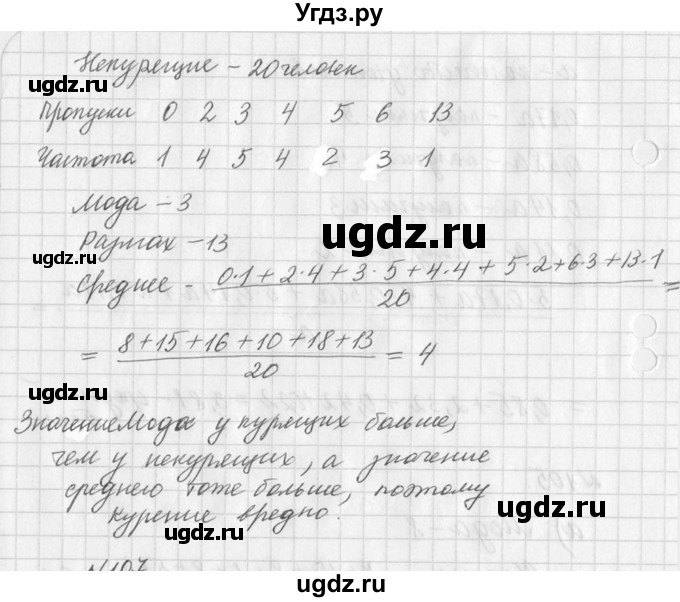 Угдз.ру
Некурящие – 20 человек
Пропуски 0 2 3 4 5 6 13
Частота 1 4 5 4 2 3 1
Мода – 3
Размах – 13
ugdz.ru
Среднее - (0·1 + 2·4 + 3·5 + 4·4 + 5·2 + 6·3 + 13·1)/20 =
= (8 + 15 + 16 + 10 + 18 + 13)/20 = 4
ugdz.ru ugdz.ru
Значение Мода у курящих больше,
чем у некурящих, а значение
среднего тоже больше, поэтому
курение вредно.
ugdz.ru ugdz.ru
№107
ugdz.ru